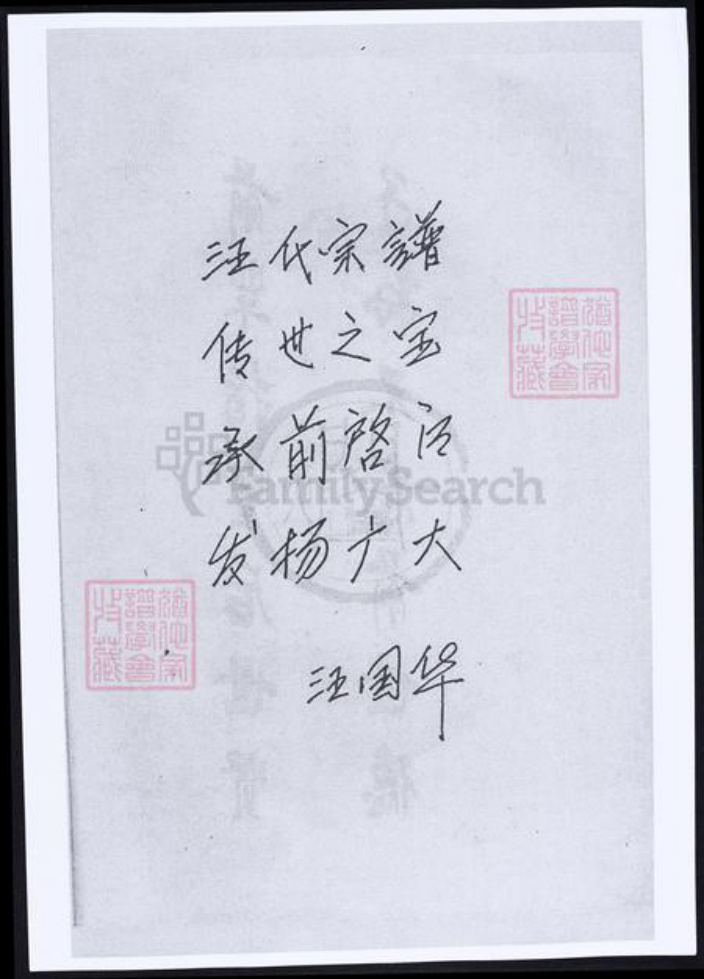 汪代宗譜
传世之宝
承前啓后
发扬广大
汪国华
猶他家
譜學會
收藏
FamilySearch
猶他家
譜學會
收藏